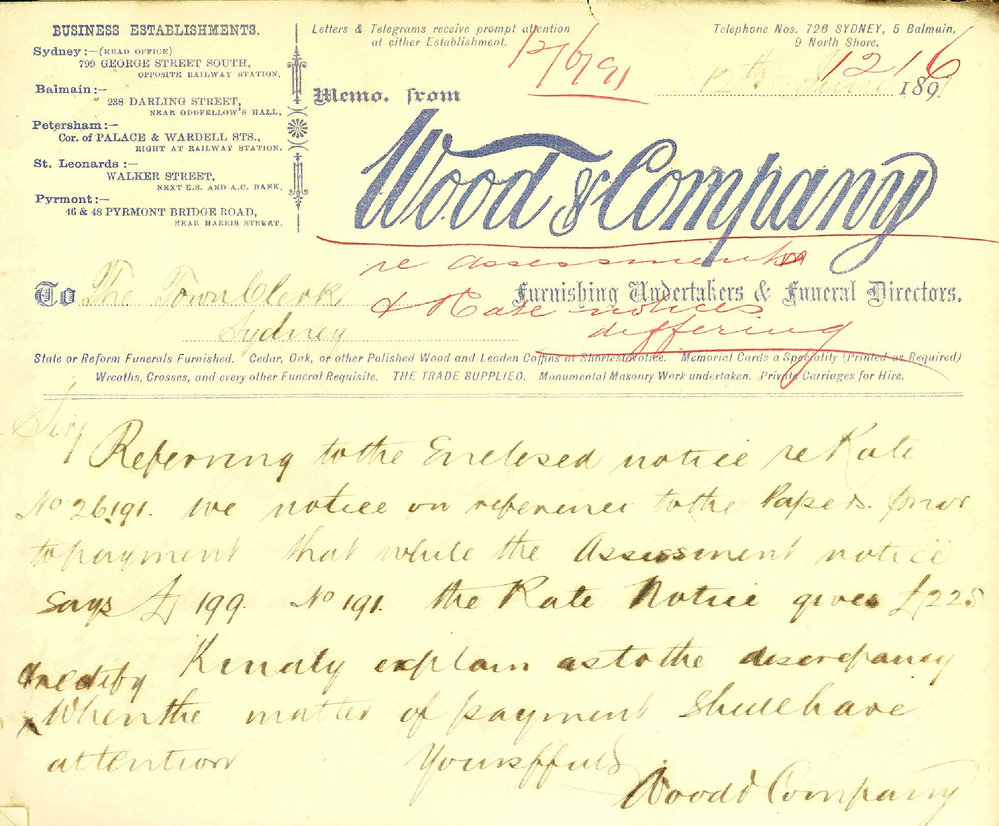 BUSINESS ESTABLISHMENTS.
Sydney:-(HEAD OFFICE)
799 GEORGE STREET SOUTH,
OPPOSITE RAILWAY STATION.
Balmain:-
238 DARLING STREET,
NEAR ODDFELLOW'S HALL.
Petersham:-
Cor. of PALACE & WARDELL STS.,
RIGHT AT RAILWAY STATION.
St. Leonards:-
WALKER STREET,
NEXT E.S. AND A.C. BANK.
Pyrmont:-
46 & 48 PYRMONT BRIDGE ROAD,
NEAR HARRIS STREET.
Letters & Telegrams receive prompt attention
at either Establishment.
12/6/91
Telephone Nos. 726 SYDNEY, 5 Balmain,
9 North Shore.
1216
12th June 189
Memo. from
Wood & Company
re assessment
& Rate notices
differing
To The Town Clerk
Sydney
Furnishing Undertakers & Funeral Directors.
State or Reform Funerals Furnished. Cedar, Oak, or other Polished Wood and Leaden Coffins at Shortest Notice. Memorial Cards a Speciality (Printed as Required)
Wreaths, Crosses, and every other Funeral Requisite. THE TRADE SUPPLIED. Monumental Masonry Work undertaken. Private Carriages for Hire.
Sir
Referring to the Enclosed notice re Rate
No 26191. we notice on reference to the Papers. prior
to payment that while the Assessment notice
says £199. No 191. the Rate Notice gives £225
Kindly explain as to the discrepancy
& rectify
When the matter of payment shall have
attention Yours ffuls
Wood & Company